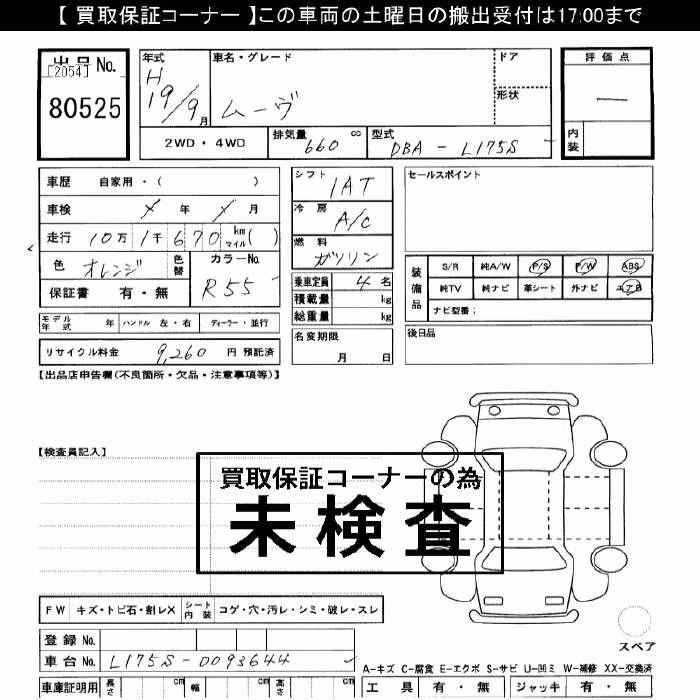 【 買取保証コーナー 】この車両の土曜日の搬出受付は17:00まで
出品 No.
[2054]
80525
年式
H
19/9月
車名・グレード
ムーヴ
ドア
形状
評価点
内装
2WD ・ 4WD
排気量
660 cc
型式
DBA - L175S
車歴 自家用・( )
車検 年 月
走行 10万 1千 670 km マイル ( )
色 オレンジ
色替
カラーNo.
R55
保証書 有・無
シフト
IAT
冷房
A/C
燃料
ガソリン
乗車定員 4 名
積載量 kg
総重量 kg
名変期限
月 日
セールスポイント
装備品
S/R 純A/W P/S P/W ABS
純TV 純ナビ 革シート 外ナビ エアB
ナビ型番:
後日品
モデル年式 年 ハンドル 左・右 ディーラー・並行
リサイクル料金 9,260 円 預託済
【出品店申告欄(不良箇所・欠品・注意事項等)】
【検査員記入】
買取保証コーナーの為
未検査
FW キズ・トビ石・割レX シート内装 コゲ・穴・汚レ・シミ・破レ・スレ
スペア
登録 No.
車台 No. L175S-0093644
A-キズ C-腐食 E-エクボ S-サビ U-凹ミ W-補修 XX-交換済
車庫証明用 長さ cm 幅 cm 高さ cm
工具 有・無 ジャッキ 有・無